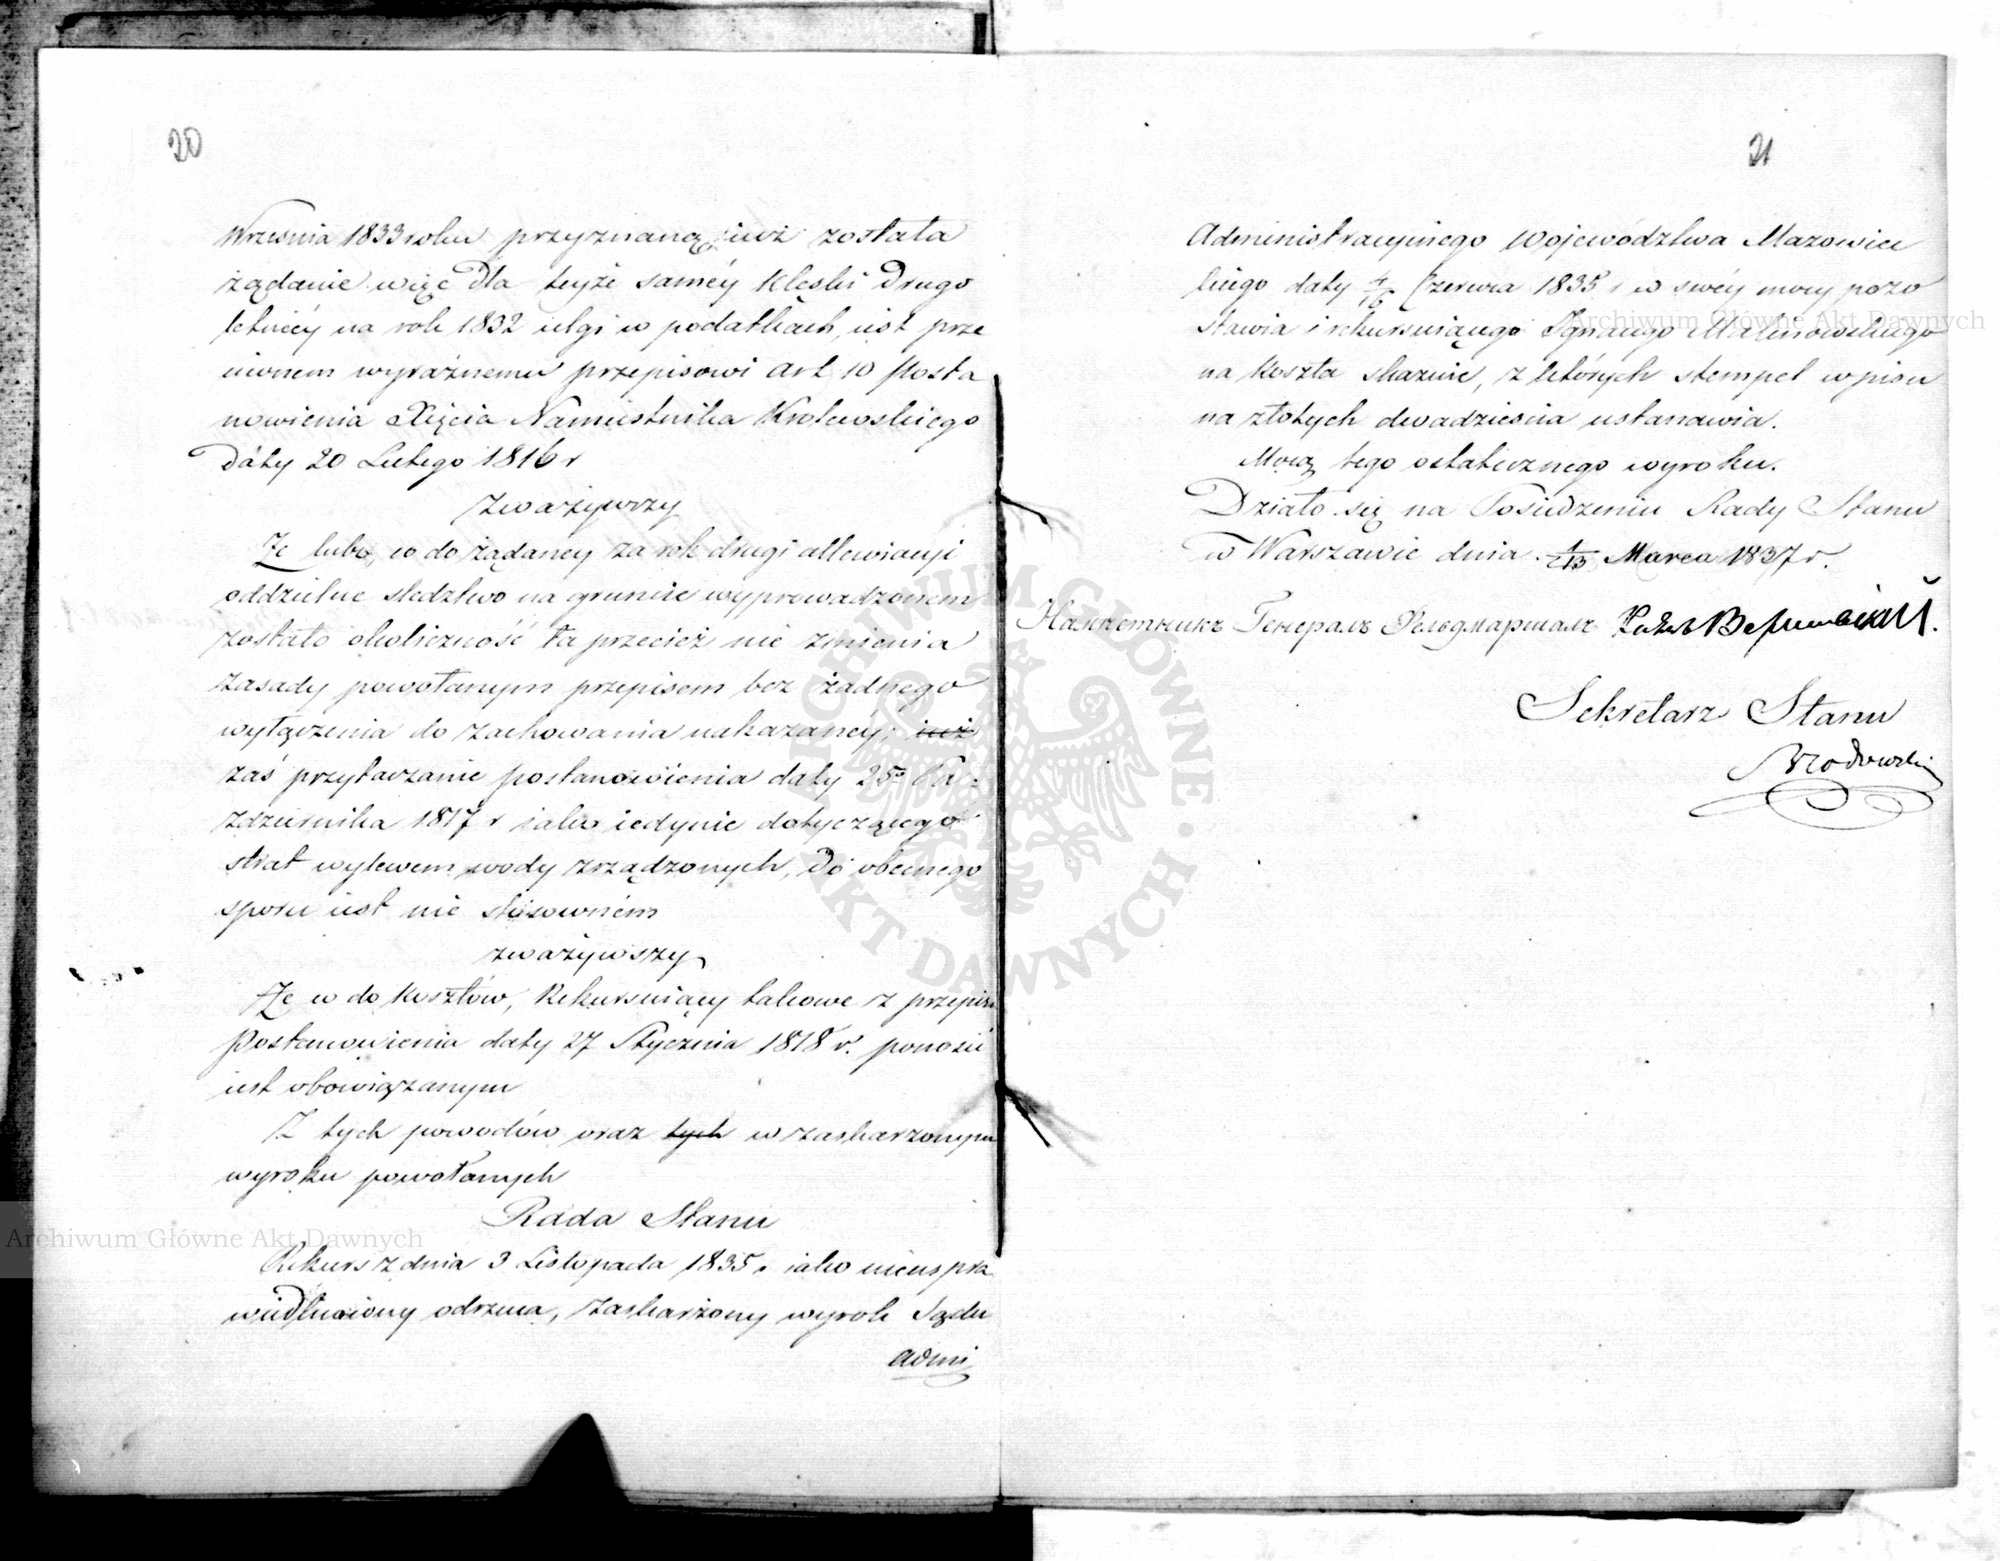 20
Września 1833 roku przyznaną iuż została
żądanie więc dla teyże saméy klęski drugo
letniéy na rok 1832 ulgi w podatkach, iest prze
ciwnem wyraźnemu przepisowi art 10 Posta
nowienia Xięcia Namiestnika Krolewskiego
daty 20 Lutego 1816 r
Zważywszy
Że lubo, co do żądaney za rok drugi allewiacyi
oddzielne sledztwo na gruncie wyprowadzonem
zostało okoliczność ta przecież nie zmienia
zasady powołanym przepisem bez żadnego
wyłączenia do zachowania nakazanéy; iuż
zaś przytaczanie postanowienia daty 25º Pa-
zdziernika 1817 r iako iedynie dotyczącego
strat wylewem wody zrządzonych, do obecnego
sporu iest nie stosowném
zważywszy
Że co do kosztów, Rekursuiący takowe z przepisu
Postanowienia daty 27 Stycznia 1818 r. ponosić
iest obowiązanym
Z tych powodów oraz tych w zaskarzonym
wyroku powołanych
Rada Stanu
Rekurs z dnia 3 Listopada 1835 r iako nieuspra
wiedliwiony odrzuca, zaskarżony wyrok Sądu
Admi
21
Administracyinego Województwa Mazowiec
kiego daty 4/16 Czerwca 1835 r w swéy mocy pozo
stawia i rekursuiącego Ignacego Malinowskiego
na koszta skazuie, z których stempel wpisu
na złotych dwadzieścia ustanawia.
Mocą tego ostatecznego wyroku.
Działo się na Posiedzeniu Rady Stanu
w Warszawie dnia 1/13 Marca 1837 r.
Намѣстникъ Генералъ Фельдмаршалъ
Sekretarz Stanu
Brodowski
Archiwum Główne Akt Dawnych
Archiwum Główne Akt Dawnych
ARCHIWUM GŁÓWNE · AKT DAWNYCH ·